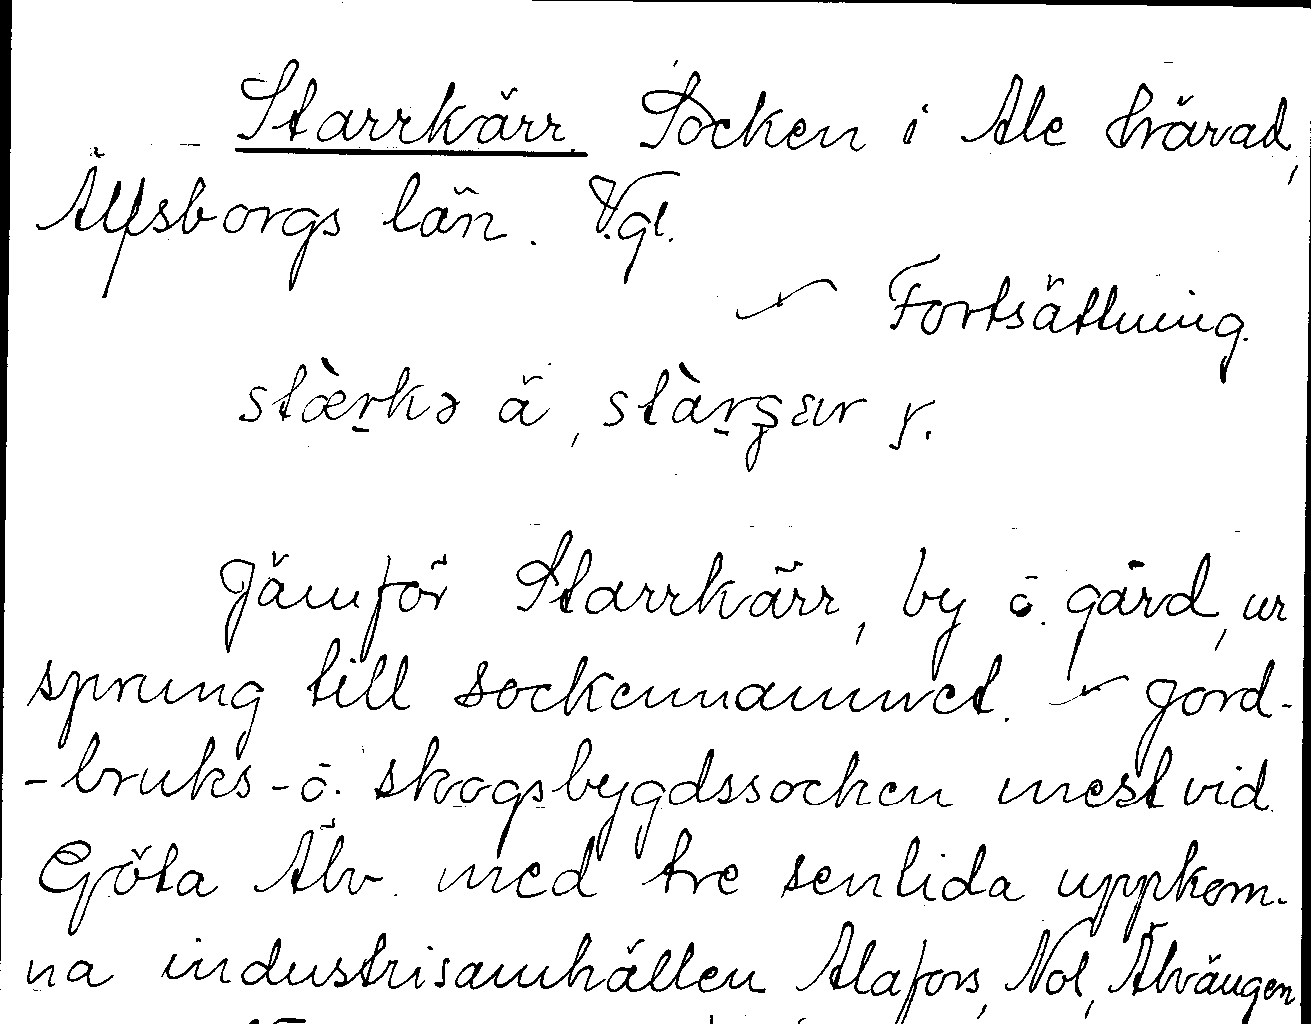 Starrkärr. Socken i Ale härad,
Älfsborgs län. Vgl.
Fortsättning.
stærkə ä, stàrşur r.
Jämför Starrkärr, by o. gård, ur
sprung till sockennamnet. - Jord-
-bruks- o. skogsbygdssocken mest vid
Göta Älv med tre sentida uppkom-
na industrisamhällen Alafors, Nol, Älvängen.